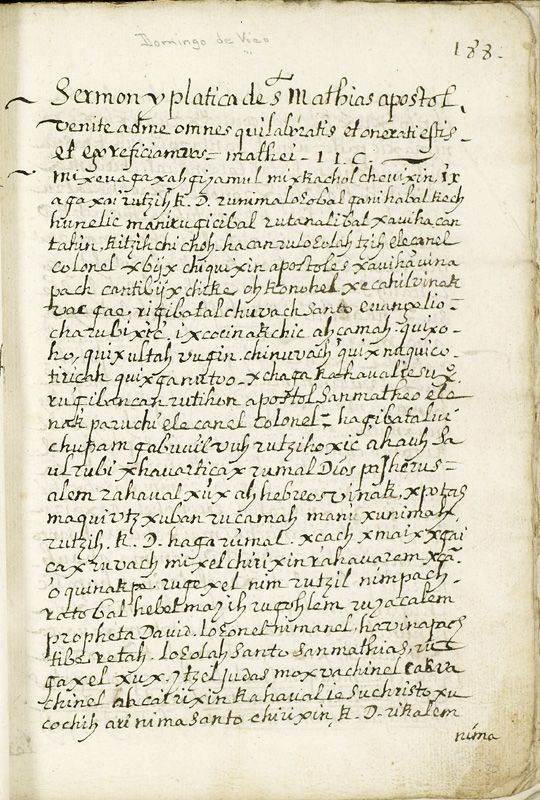 Domingo de Vico
188.
Sermon y platica de s. Mathias apostol.
venite ad me omnes qui laboratis et onerati estis
et ego reficiam vos = mathei - 11. C.
mixevagaxah gizamul mixkachol chovixin ix
aga xoi rutzih k. D. rumma loλobal gani habal kech
hunelic mani rugicibal rutanalibal xaviha can
tahin. kitzih chi choh. hacanruloλolah tzih ele canel
colonel xbijx chiquixin apostoles xaviha vina
pack cantibijx chike oh konohel xecahil vinak
vae gae, rigibatal chuvach Santo evangelio =
cha rubixic, ixcocinakchic ah camah. quixo-
ho, quix ultah vugin. chinuvach quix nuquico-
tiricah quix ganutvo - xchaga kahaval iesu x.
rugibancan rutihon apostol San matheo ele
nak paruchi ele canel colonel = hagibatal vi
chupam gabuvil vuh rutzihoxic ahauh Sa
ul rubi xhavarticax rumal Dios pa jherus =
alem rahaval xux ah hebreos vinak, xpotas
maqui vtz xuban rucamah manixunimah
rutzih. k. D. haga rumal xcach xmaixxgai
cax ruvach mixel chirixin rahavarem xcā
o quinak pe rugexel nim rutzil nim pach-
ratobal hebel maih rugohlem ruzacalem
propheta David. loλonel nimanel havinapach
kibe retah. loλolah Santo San mathias, ru
gaxel xux. ytzel judas moxvachinel cakva
chinel ah catirixin kahaval iesuchristo xu
cochih ari nima santo chirixin k. D. rikalem
nima